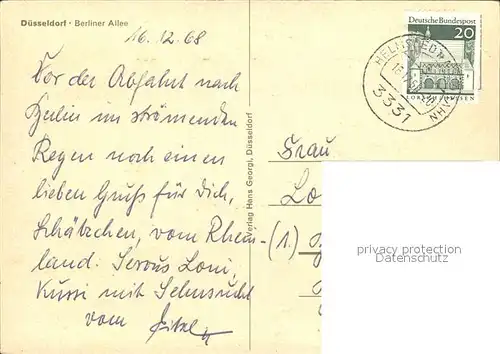 Düsseldorf · Berliner Allee
16.12.68
Vor der Abfahrt nach
Berlin im strömenden
Regen noch einen
lieben Gruß für Dich,
Schätzchen, vom Rhein-
land. Servus Loni,
Kussi mit Sehnsucht
vom
Verlag Hans Georgi, Düsseldorf
Frau
Lo
(1)
Deutsche Bundespost
20
LORSCH/HESSEN
HELMSTEDT
3331
privacy protection
Datenschutz